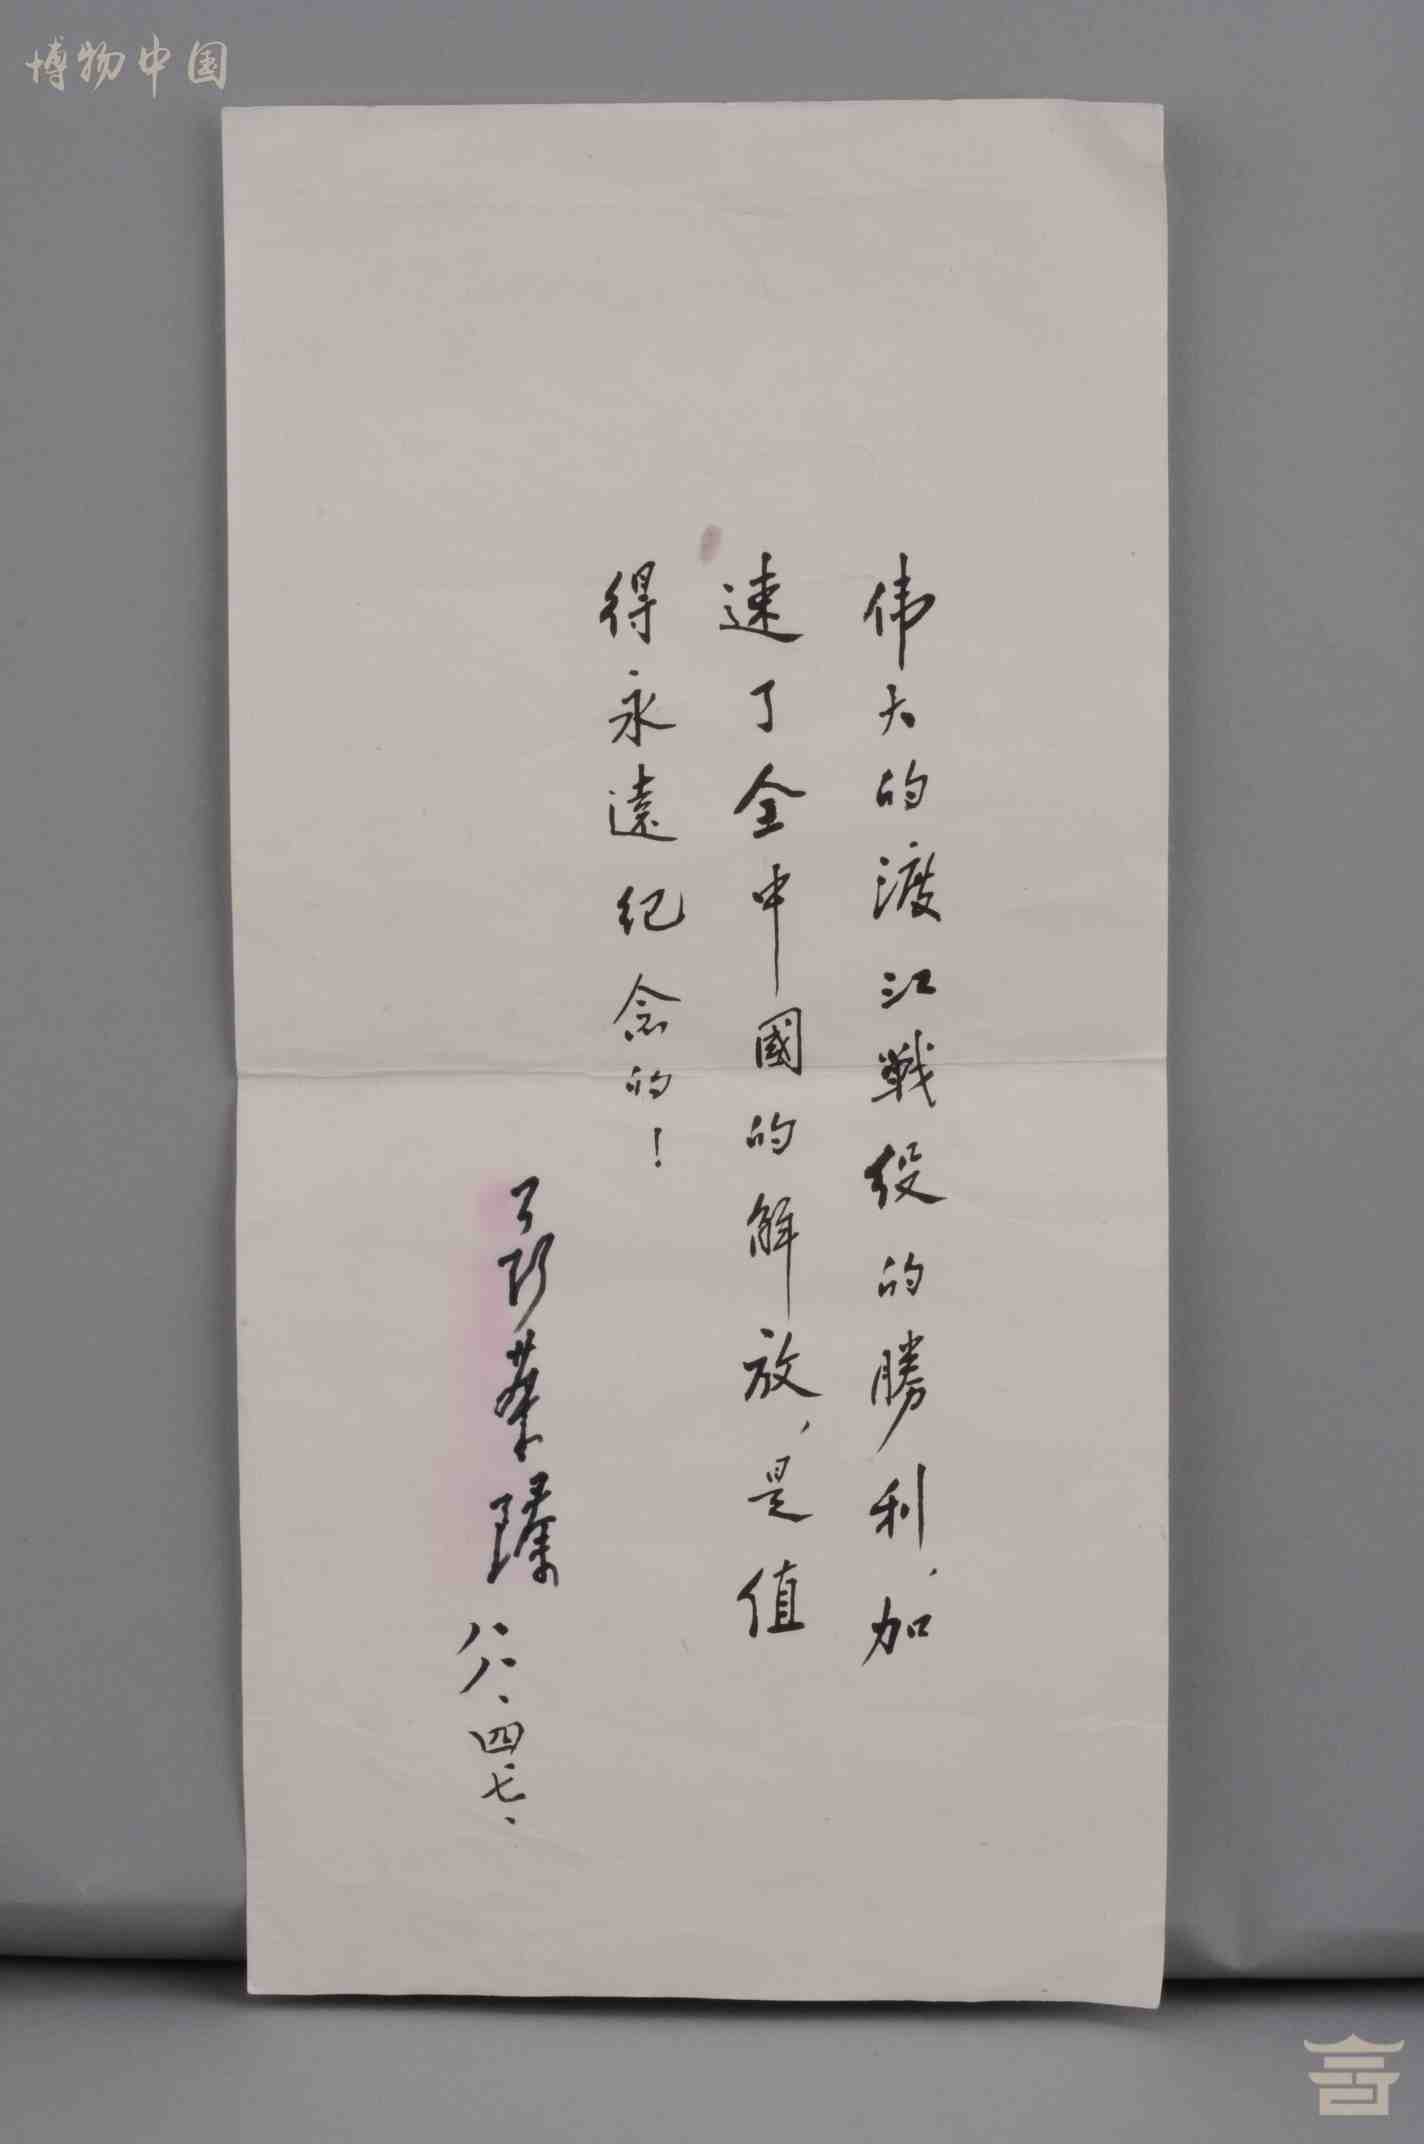 博物中国
伟大的渡江戦役的勝利，加
速了全中國的解放，是值
得永遠紀念的！
孫荣臻
八八、四、七、